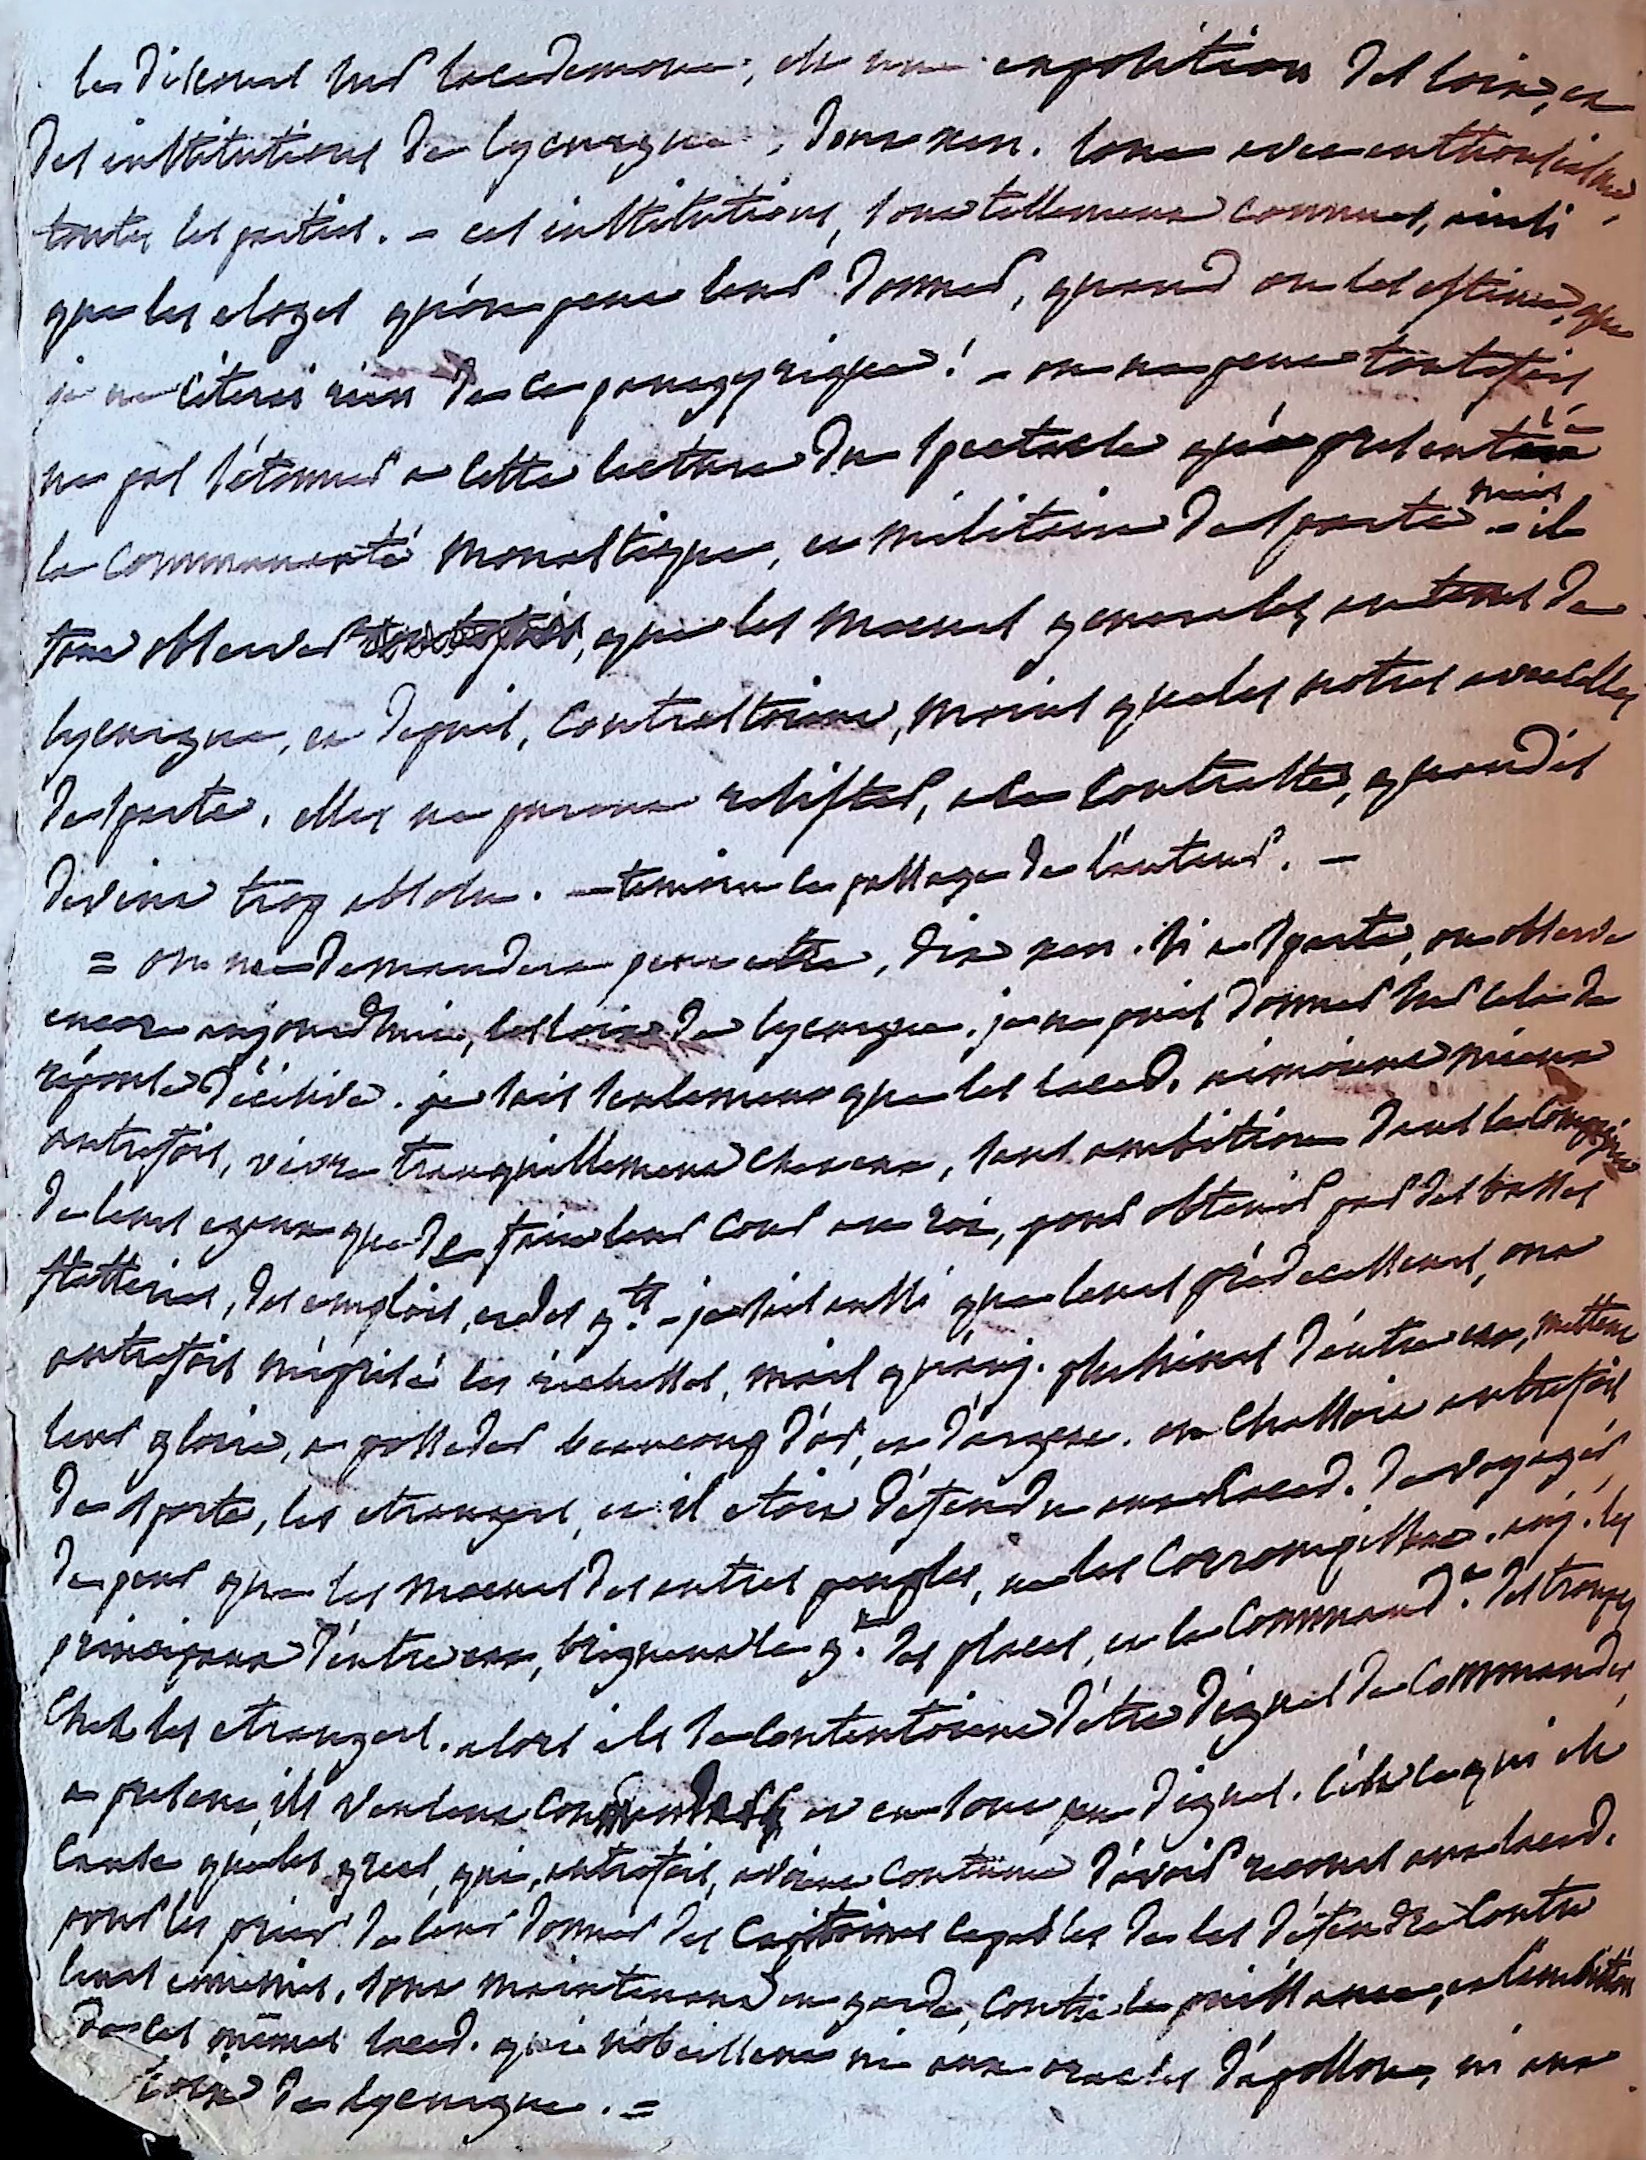 le discours sur lacedemone, est une exposition des loix, et
des institutions de lycurgue, dont xen. loue avec enthousiasme,
toutes les parties. - ces institutions, sont tellement connues, ainsi
que les eloges qu'on peut leur donner, quand on les estime, que
je ne citerai rien de ce panegyrique! - on ne peut toutefois
ne pas s'étonner a cette lecture du spectacle qu'a presenté
la communauté monastique, et militaire de sparte - mais il
faut observer que les moeurs generales, au tems de
lycurgue, et depuis, contrastoient, moins que les notres avec celles
de sparte. elles ne purent resister, a ce contraste, quand il
devint trop absolu. - temoin ce passage de l'auteur. -
= on me demandera peut etre, dit xen. si a sparte, on observe
encore aujourdhui, les loix de lycurgue. je ne puis donner sur cela de
réponse décisive. je sais seulement que les laced. aimoient mieux
autrefois, vivre tranquillement chez eux, sans ambition dans la compagnie
de leurs egaux que de faire leur cour au roi, pour obtenir par des basses
flatteries, des emplois, et des gts - je sais aussi que leurs prédecesseurs, ont
autrefois méprisé les richesses, mais qu'auj. plusieurs d'entre eux, mettent
leur gloire, a posseder beaucoup d'or, et d'argent. on chassoit autrefois
de sparte, les etrangers, et il etoit défendu aux laced. de voyager,
de peur que les moeurs des autres peuples, ne les corrompissent. auj. les
principaux d'entre eux, briguent le gt. des places, et le command.t des troupes
chez les etrangers. alors ils se contentoient d'être dignes de commander,
a present, ils veulent commander et en sont peu dignes. c'est ce qui est
cause que les grecs, qui, autrefois, avoient coutume d'avoir recours aux laced.
pour les prier de leur donner des capitaines capables de les défendre contre
leurs ennemis, sont maintenant en garde, contre la puissance, et l'ambition
de ces mêmes laced. qui n'obeissent ni aux oracles d'apollon, ni aux
loix de lycurgue. =